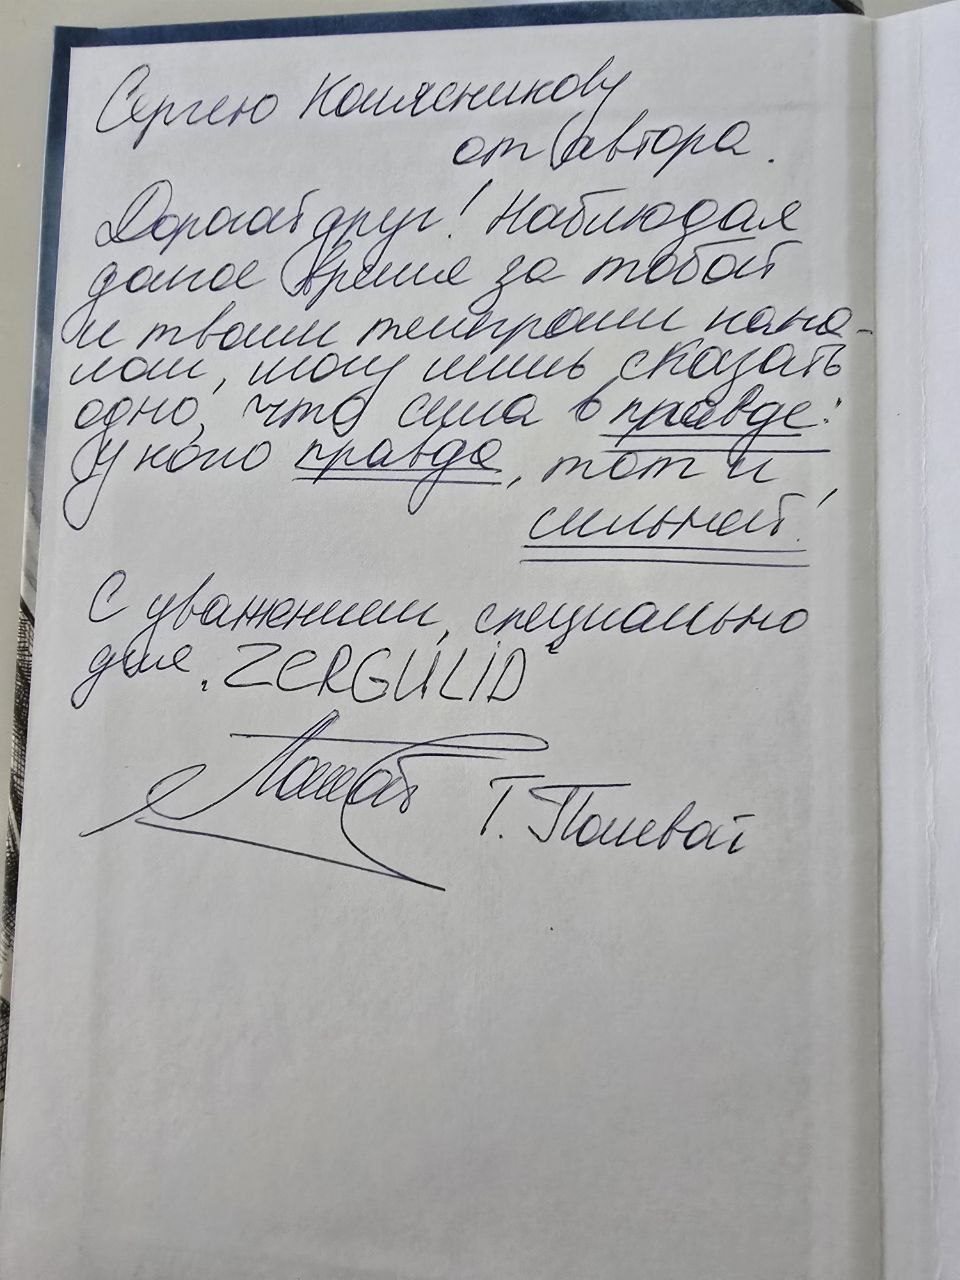 Сергею Колясникову
от автора.
Дорогой друг! Наблюдая
долгое время за тобой
и твоим телеграмм кана-
лом, могу лишь сказать
одно, что сила в правде:
у кого правда, тот и
сильней!
С уважением, специально
для „ZERGULIO"
Т. Полевой